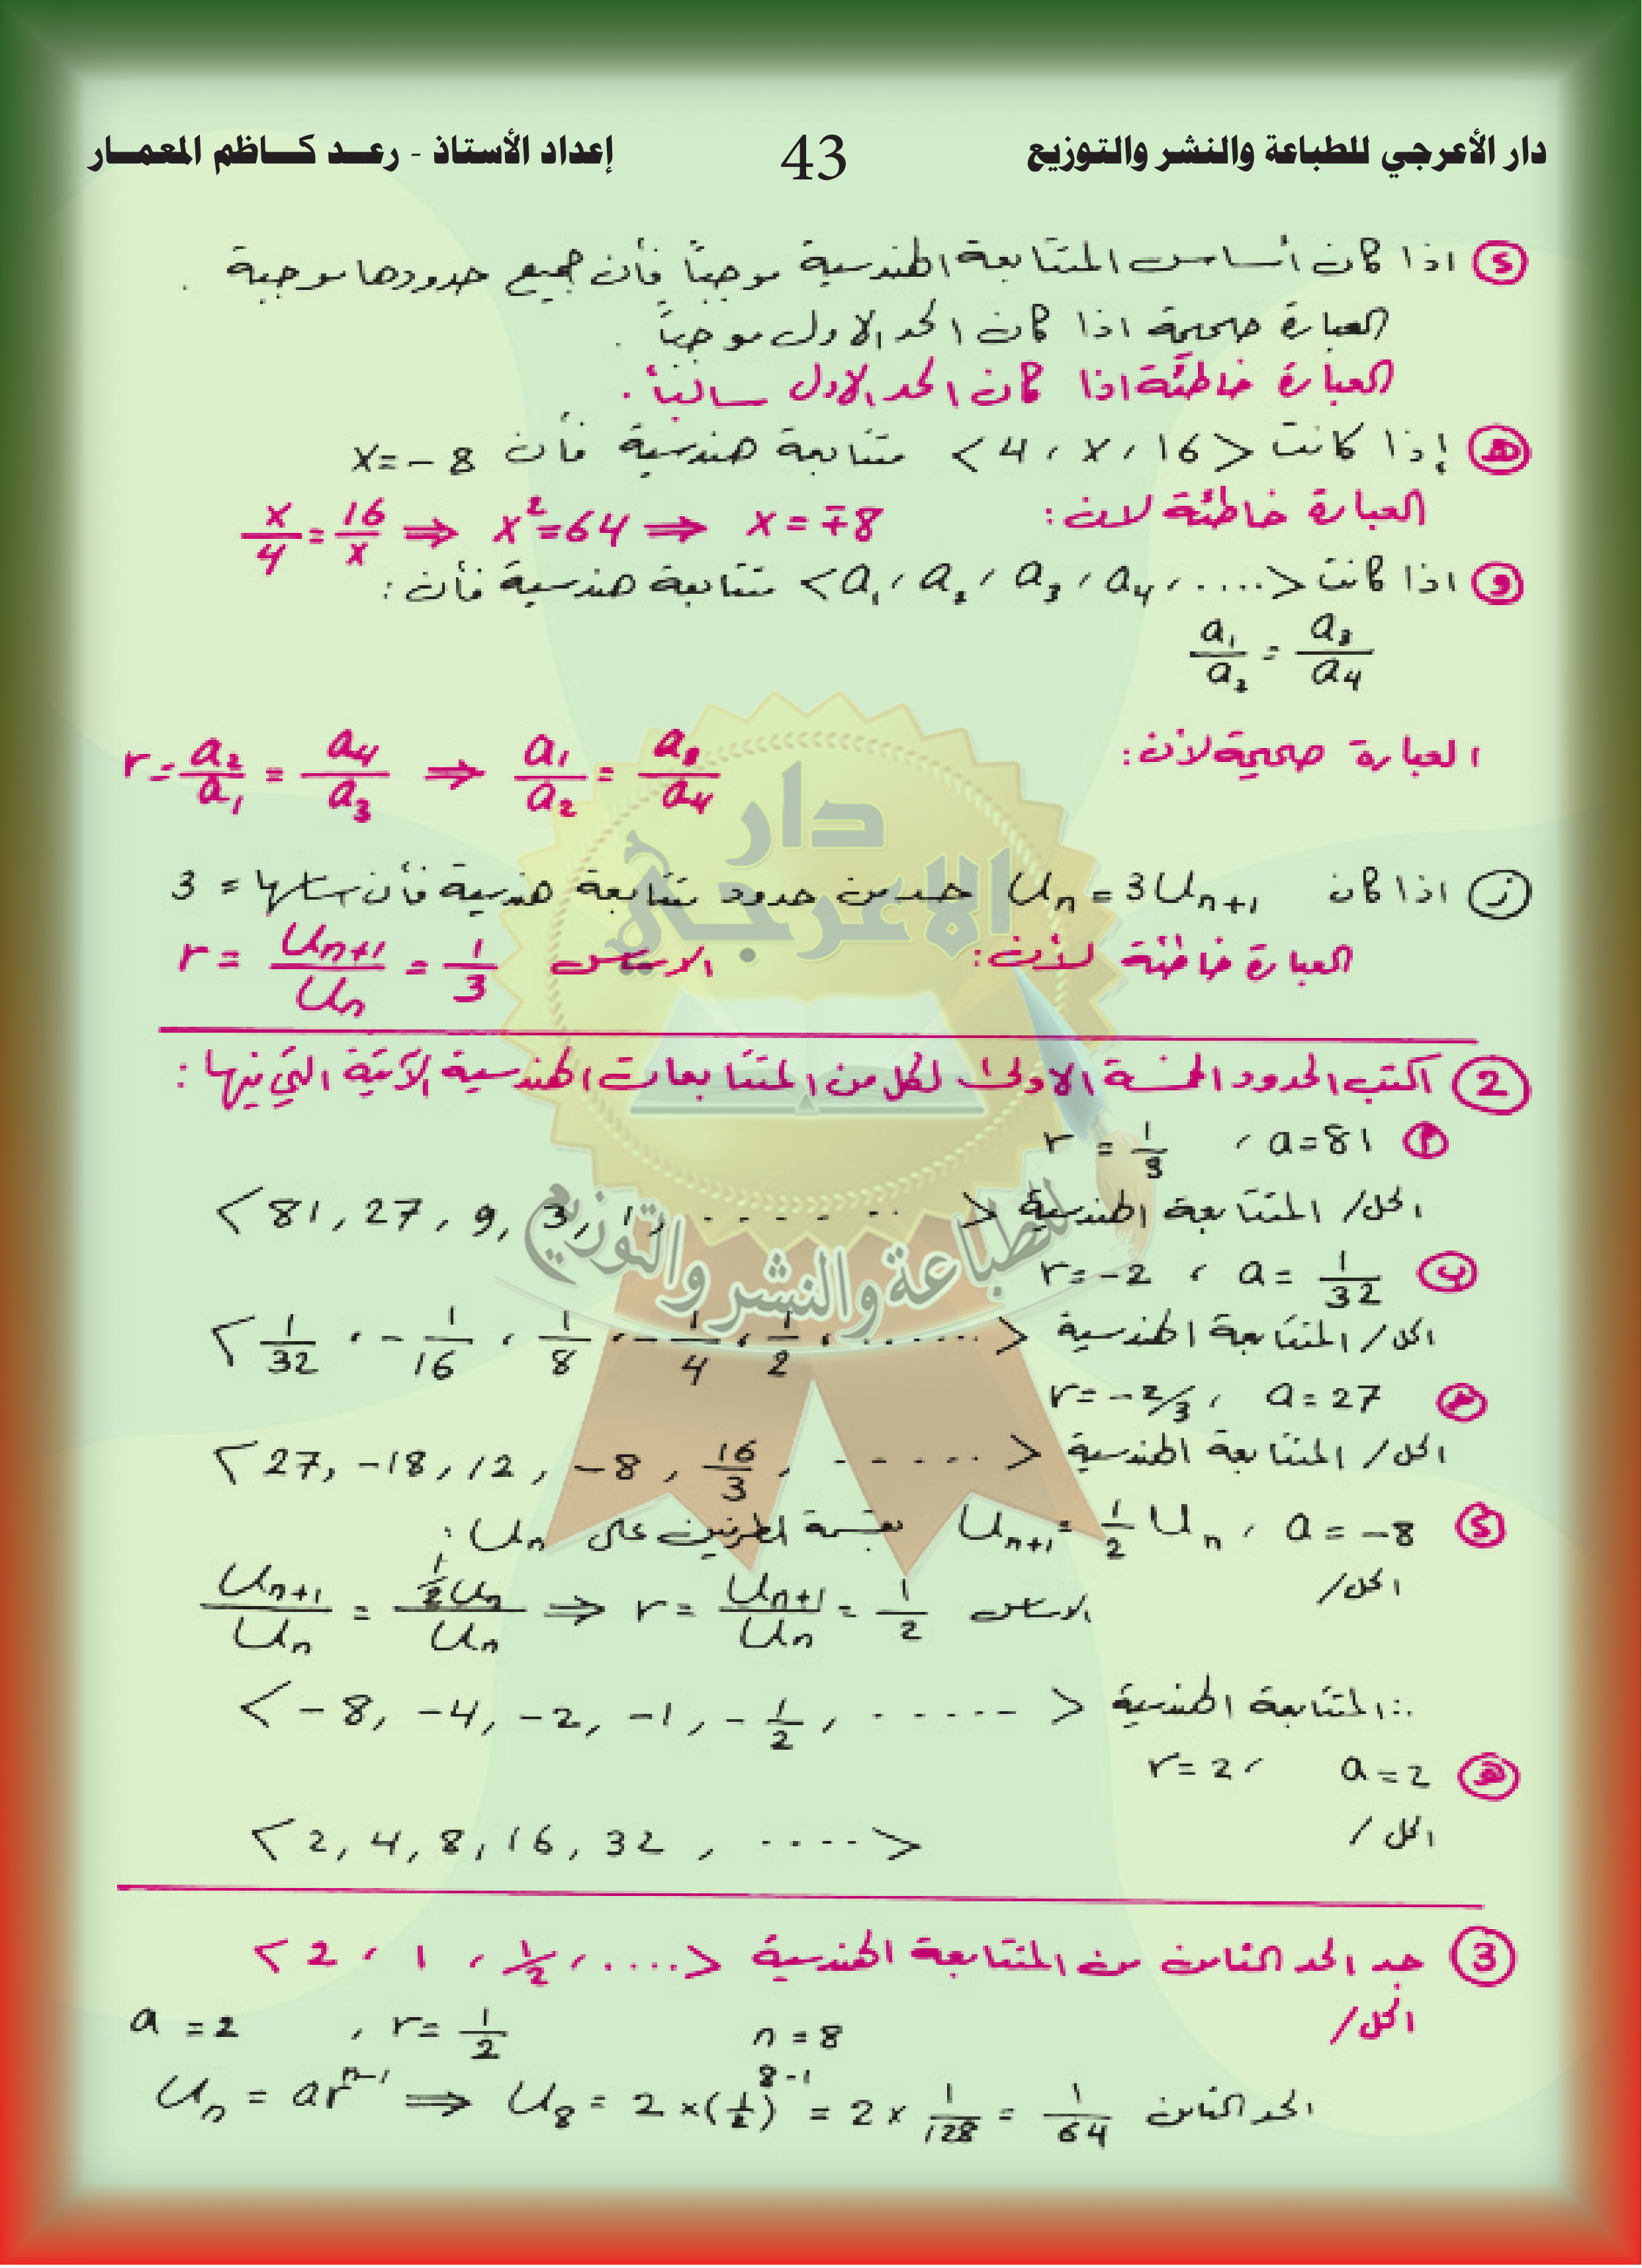 دار الأعرجي للطباعة والنشر والتوزيع 43 إعداد الأستاذ - رعـد كـاظم المعمـار
د اذا كان أساس المتتابعة الهندسية موجباً فأن جميع حدودها موجبة .
العبارة صحيحة اذا كان الحد الاول موجباً .
العبارة خاطئة اذا كان الحد الاول سالباً .
هـ إذا كانت <4 ، x ، 16> متتابعة هندسية فأن x = -8
العبارة خاطئة لان : x/4 = 16/x ⇒ x² = 64 ⇒ x = ∓8
و اذا كانت <a₁ ، a₂ ، a₃ ، a₄ ، ....> متتابعة هندسية فأن :
a₁/a₂ = a₃/a₄
العبارة صحيحة لأن : r = a₂/a₁ = a₄/a₃ ⇒ a₁/a₂ = a₃/a₄
ز اذا كان Uₙ = 3Uₙ₊₁ حد من حدود متتابعة هندسية فأن اساسها = 3
العبارة خاطئة لأن : الاساس r = Uₙ₊₁/Uₙ = 1/3
2 اكتب الحدود الخمسة الاولى لكل من المتتابعات الهندسية الآتية التي فيها :
أ a = 81 ، r = 1/3
الحل / المتتابعة الهندسية <81, 27, 9, 3, 1, ......>
ب a = 1/32 ، r = -2
الحل / المتتابعة الهندسية <1/32 ، -1/16 ، 1/8 ، -1/4 ، 1/2 ، ......>
ج a = 27 ، r = -2/3
الحل / المتتابعة الهندسية <27, -18, 12, -8, 16/3, ......>
د a = -8 ، Uₙ₊₁ = 1/2 Uₙ بقسمة الطرفين على Uₙ :
الحل /
Uₙ₊₁/Uₙ = 1/2 Uₙ/Uₙ ⇒ r = Uₙ₊₁/Uₙ = 1/2 الاساس
∴ المتتابعة الهندسية <-8, -4, -2, -1, -1/2, ......>
هـ a = 2 ، r = 2
الحل /
<2, 4, 8, 16, 32, ....>
3 جد الحد الثامن من المتتابعة الهندسية <2 ، 1 ، 1/2 ، ....>
الحل /
a = 2 , r = 1/2 n = 8
Uₙ = arⁿ⁻¹ ⇒ U₈ = 2 × (1/2)⁸⁻¹ = 2 × 1/128 = 1/64 الحد الثامن
دار
الاعرجي
للطباعة والنشر والتوزيع